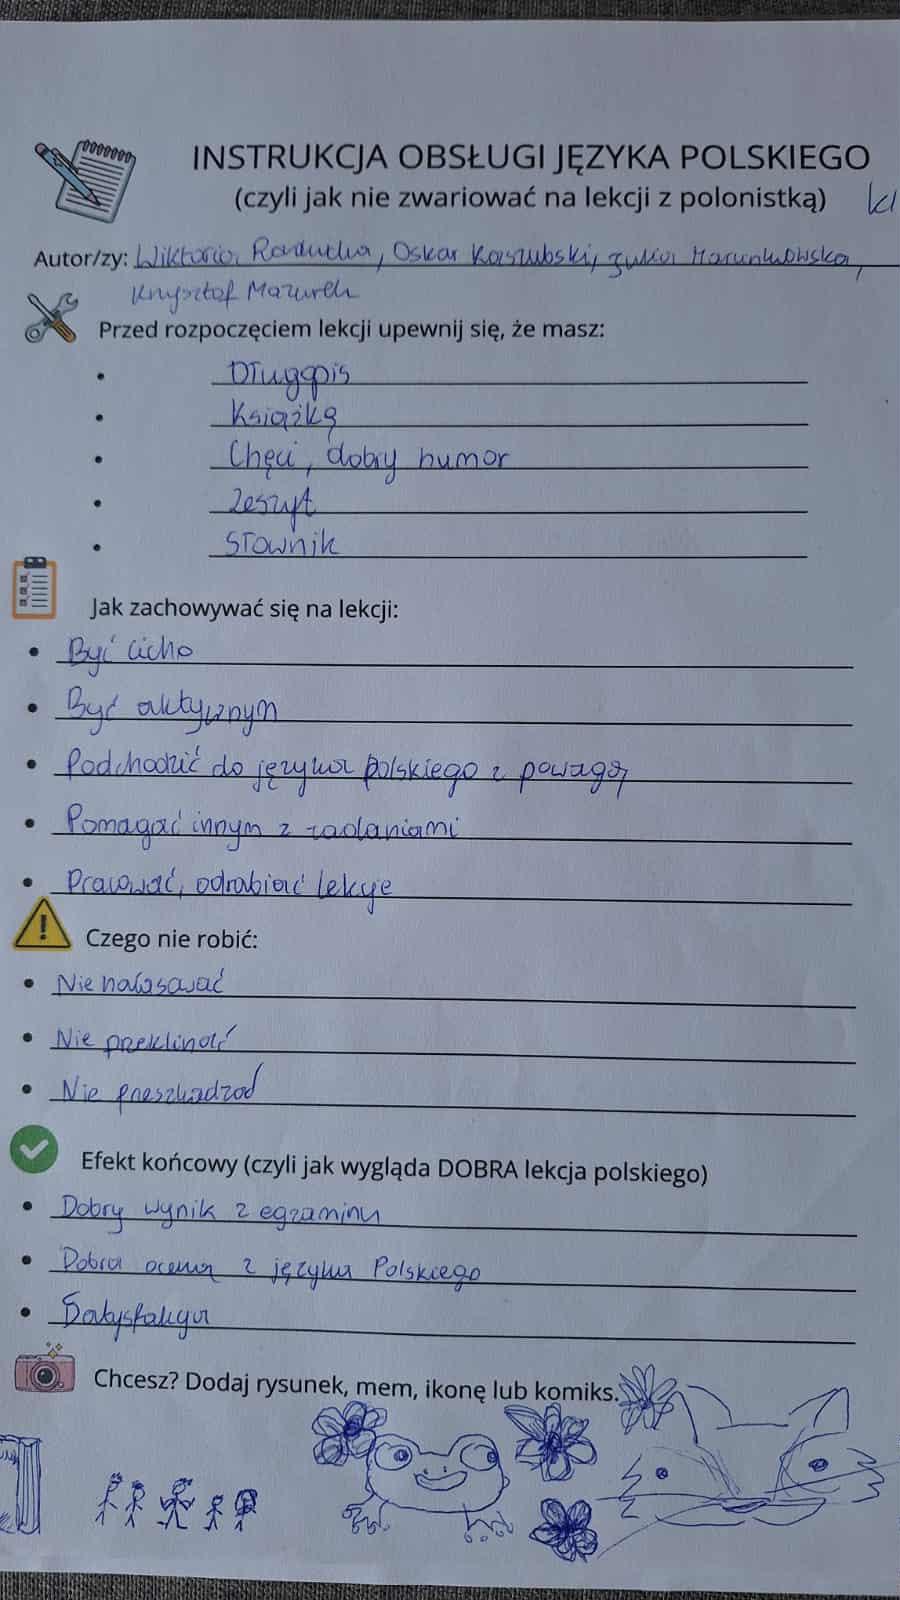 INSTRUKCJA OBSŁUGI JĘZYKA POLSKIEGO
(czyli jak nie zwariować na lekcji z polonistką) kl
Autor/zy: Wiktoria Oskar Kaszubski,
Krzysztof Mazurek
Przed rozpoczęciem lekcji upewnij się, że masz:
Długopis
Książkę
Chęci, dobry humor
Zeszyt
Słownik
Jak zachowywać się na lekcji:
Być cicho
Być aktywnym
Podchodzić do języka polskiego z powagą
Pomagać innym z zadaniami
Pracować, odrabiać lekcje
Czego nie robić:
Nie hałasować
Nie przeklinać
Nie przeszkadzać
Efekt końcowy (czyli jak wygląda DOBRA lekcja polskiego)
Dobry wynik z egzaminu
Dobra ocena z języka Polskiego
Satysfakcja
Chcesz? Dodaj rysunek, mem, ikonę lub komiks.